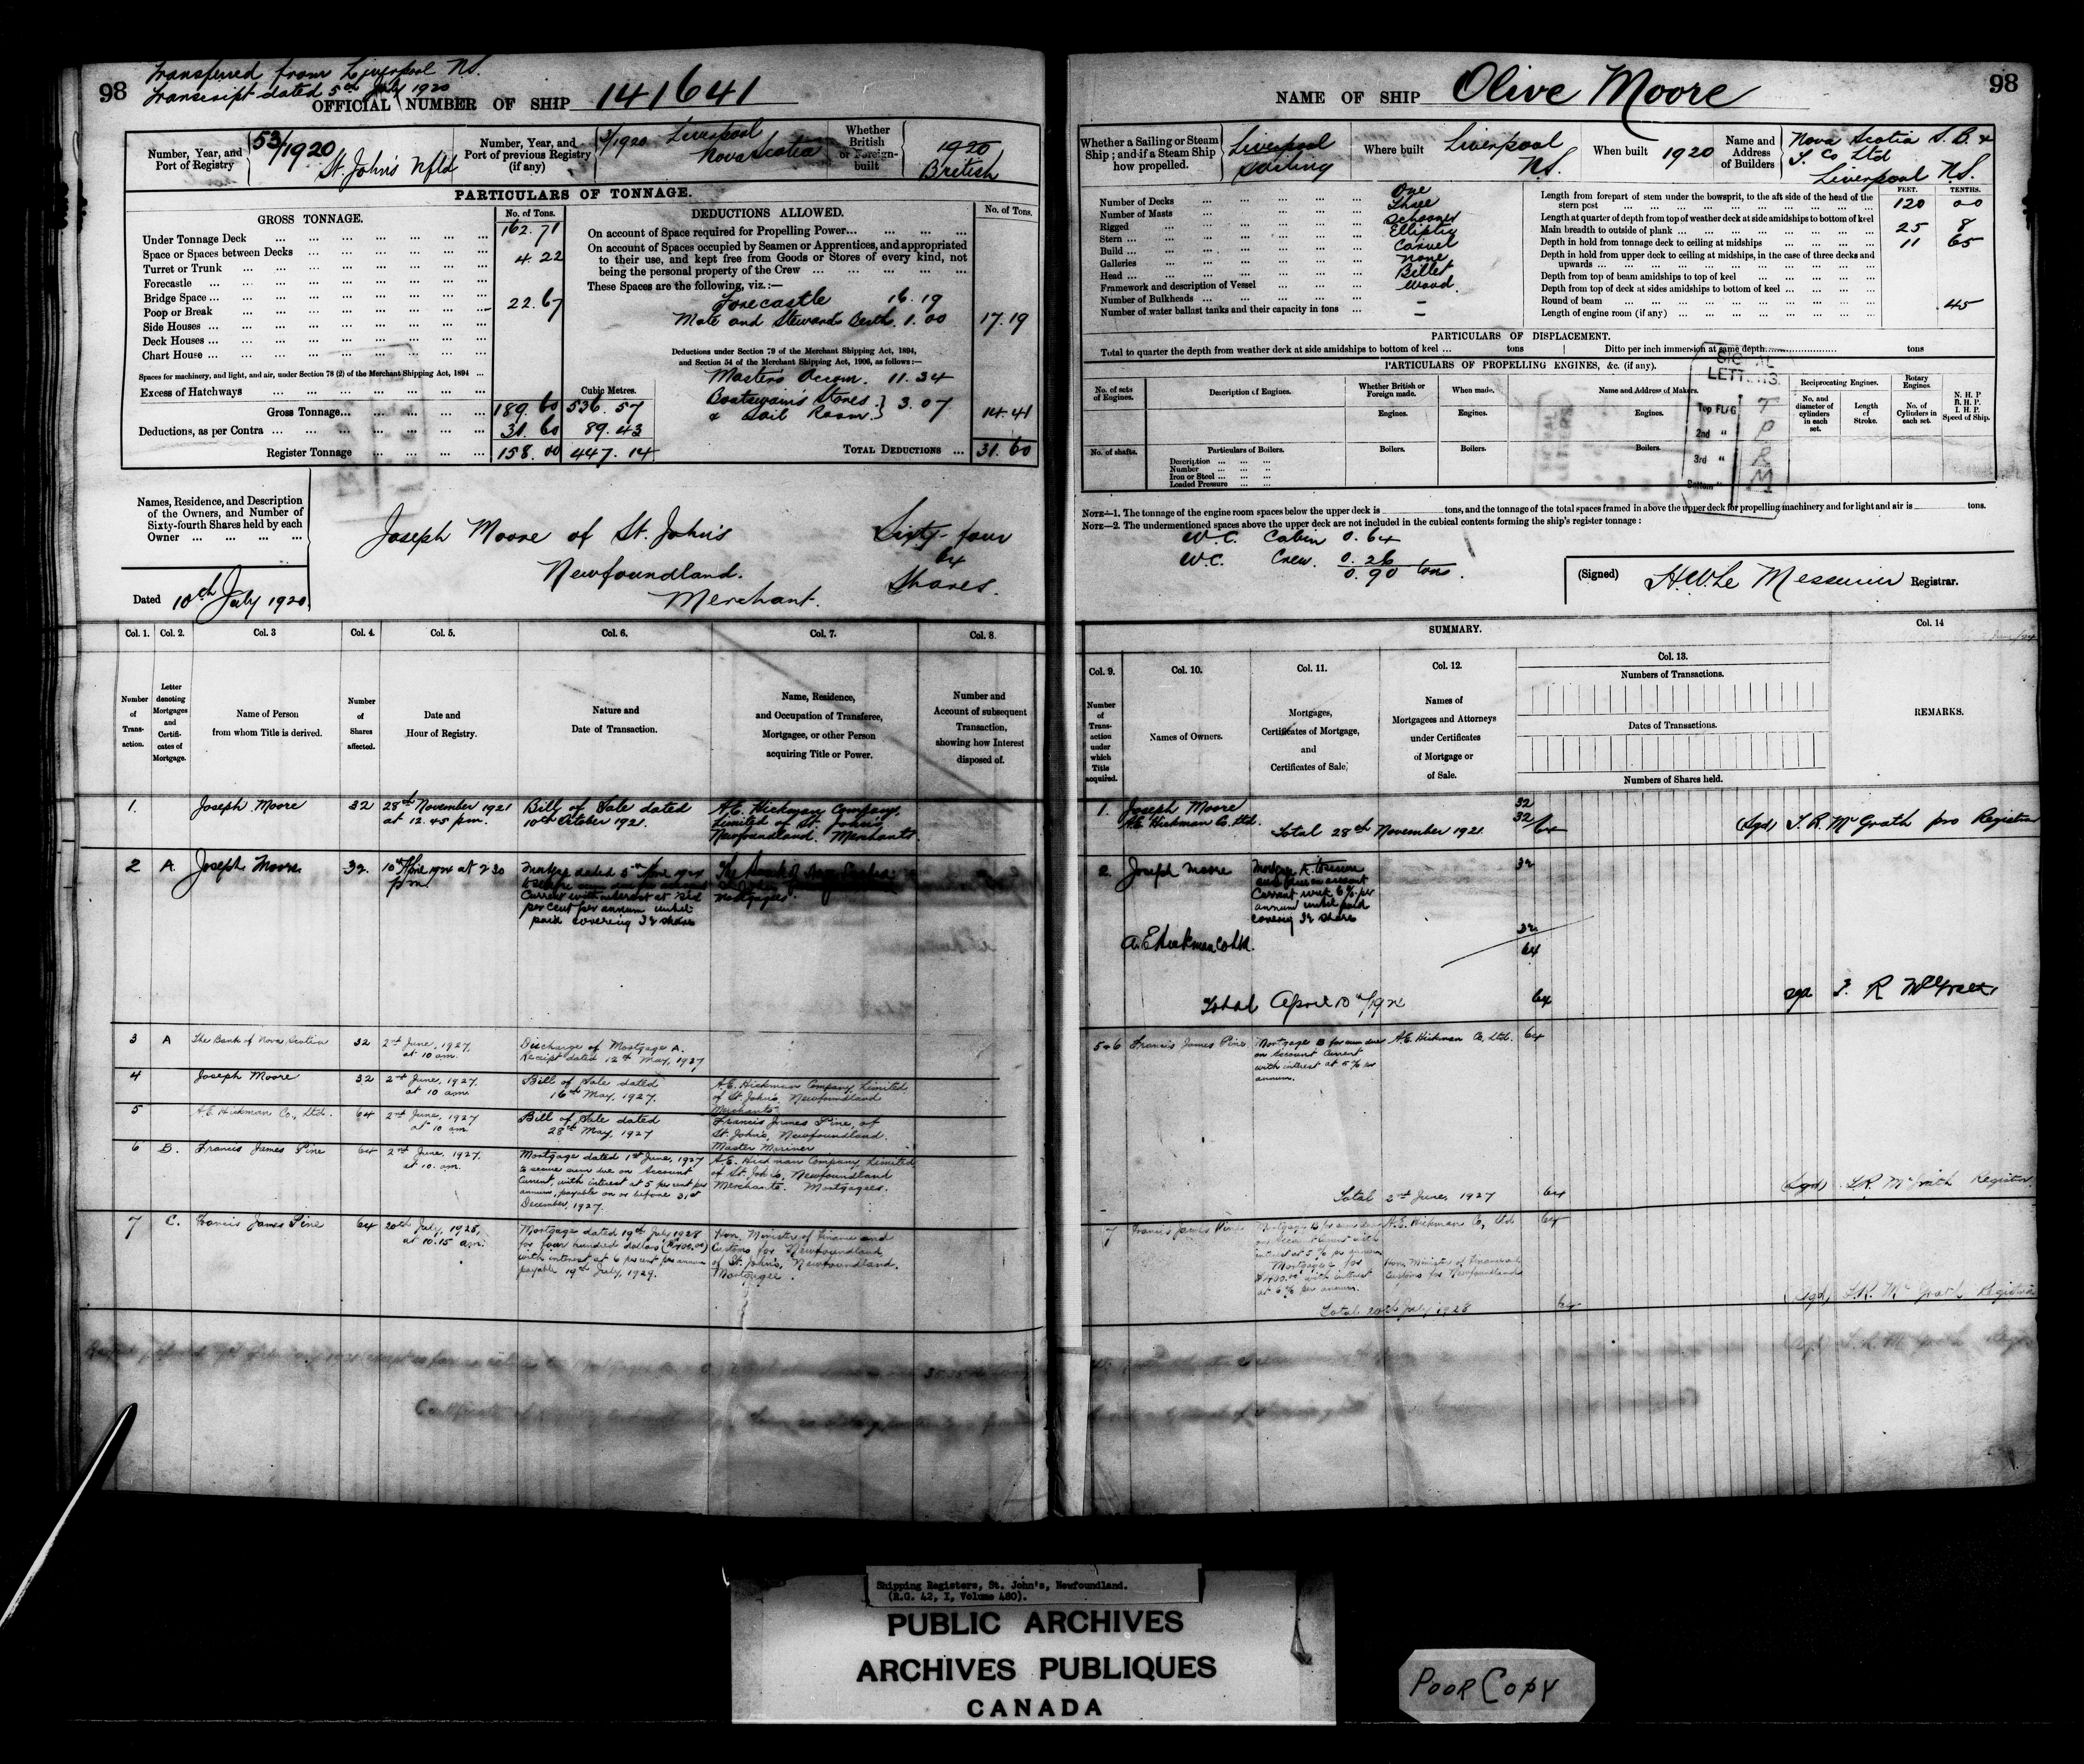 98
Transferred from Liverpool N.S.
Transcript dated 5th July 1920
OFFICIAL NUMBER OF SHIP 141641
Number, Year, and Port of Registry
53/1920
St. John's Nfld
Number, Year, and Port of previous Registry (if any)
3/1920 Liverpool
Nova Scotia
Whether British or Foreign-built
1920
British
PARTICULARS OF TONNAGE.
GROSS TONNAGE.
No. of Tons.
Under Tonnage Deck 162.71
Space or Spaces between Decks
Turret or Trunk 4.22
Forecastle
Bridge Space
Poop or Break 22.67
Side Houses
Deck Houses
Chart House
Spaces for machinery, and light, and air, under Section 78 (2) of the Merchant Shipping Act, 1894
Excess of Hatchways
Cubic Metres.
Gross Tonnage 189.60 536.57
Deductions, as per Contra 31.60 89.43
Register Tonnage 158.00 447.14
DEDUCTIONS ALLOWED.
No. of Tons.
On account of Space required for Propelling Power
On account of Spaces occupied by Seamen or Apprentices, and appropriated
to their use, and kept free from Goods or Stores of every kind, not
being the personal property of the Crew
These Spaces are the following, viz.:—
Forecastle 16.19
Mate and Stewards Berth 1.00 17.19
Deductions under Section 79 of the Merchant Shipping Act, 1894,
and Section 54 of the Merchant Shipping Act, 1906, as follows:—
Masters Accom. 11.34
Boatswains Stores
& Sail Room } 3.07 14.41
TOTAL DEDUCTIONS 31.60
Names, Residence, and Description
of the Owners, and Number of
Sixty-fourth Shares held by each
Owner
Joseph Moore of St. John's
Newfoundland.
Merchant.
Sixty-four
64
Shares.
Dated 10th July 1920
Col. 1. Col. 2. Col. 3 Col. 4. Col. 5. Col. 6. Col. 7. Col. 8.
Number of Transaction.
Letter denoting Mortgages and Certificates of Mortgage.
Name of Person from whom Title is derived.
Number of Shares affected.
Date and Hour of Registry.
Nature and Date of Transaction.
Name, Residence, and Occupation of Transferee, Mortgagee, or other Person acquiring Title or Power.
Number and Account of subsequent Transaction, showing how Interest disposed of.
1. Joseph Moore 32 28th November 1921 at 12.45 p.m.
Bill of Sale dated 10th October 1921.
A.E. Hickman Company, Limited of St. John's Newfoundland Merchants.
2 A. Joseph Moore. 32. 10th April 1924 at 2 30 p.m.
Mortgage dated 5th April 1924
Current with interest at
per cent per annum until
paid covering 32 shares
The Bank of Nova Scotia
Mortgagees.
3 A The Bank of Nova Scotia 32 2nd June, 1927, at 10 am.
Discharge of Mortgage A.
Receipt dated 12th May, 1927
4 Joseph Moore 32 2nd June, 1927, at 10 am
Bill of Sale dated 16th May, 1927.
A.E. Hickman Company Limited of St. John's, Newfoundland Merchants
5 A.E. Hickman Co., Ltd. 64 2nd June, 1927 at 10 am
Bill of Sale dated 28th May, 1927
Francis James Pine, of St. John's, Newfoundland. Master Mariner
6 B. Francis James Pine 64 2nd June, 1927, at 10. am.
Mortgage dated 1st June, 1927
to secure sum due on Account
Current, with interest at 5 per cent per
annum, payable on or before 31st
December, 1927.
A.E. Hickman Company, Limited
of St. John's, Newfoundland
Merchants. Mortgagees.
7 C. Francis James Pine 64 20th July, 1928, at 10.15 am.
Mortgage dated 19th July 1928
for four hundred dollars ($400.00)
with interest at 6 per cent per annum
payable 19th July, 1929.
Hon. Minister of Finance and
Customs for Newfoundland,
of St. John's, Newfoundland.
Mortgagee.
98
NAME OF SHIP Olive Moore
Whether a Sailing or Steam Ship; and if a Steam Ship how propelled.
Liverpool
Sailing
Where built
Liverpool
N.S.
When built 1920
Name and Address of Builders
Nova Scotia S.B. &
T. Co Ltd
Liverpool N.S.
Number of Decks One
Number of Masts Three
Rigged Schooner
Stern Elliptic
Build Carvel
Galleries None
Head Billet
Framework and description of Vessel Wood.
Number of Bulkheads —
Number of water ballast tanks and their capacity in tons —
FEET. TENTHS.
Length from forepart of stem under the bowsprit, to the aft side of the head of the stern post 120 00
Length at quarter of depth from top of weather deck at side amidships to bottom of keel
Main breadth to outside of plank 25 8
Depth in hold from tonnage deck to ceiling at midships 11 65
Depth in hold from upper deck to ceiling at midships, in the case of three decks and upwards
Depth from top of beam amidships to top of keel
Depth from top of deck at sides amidships to bottom of keel
Round of beam .45
Length of engine room (if any)
PARTICULARS OF DISPLACEMENT.
Total to quarter the depth from weather deck at side amidships to bottom of keel tons
Ditto per inch immersion at same depth tons
PARTICULARS OF PROPELLING ENGINES, &c. (if any).
No. of sets of Engines.
Description of Engines.
Whether British or Foreign made.
When made.
Name and Address of Makers.
Reciprocating Engines.
Rotary Engines.
N. H. P
B. H. P.
I. H. P.
Speed of Ship.
Engines. Engines. Engines.
No. and diameter of cylinders in each set.
Length of Stroke.
No. of Cylinders in each set.
No. of shafts.
Particulars of Boilers.
Boilers. Boilers. Boilers.
Description
Number
Iron or Steel
Loaded Pressure
SIGNAL
LETTERS.
Top FLAG T
2nd " P
3rd " R
Bottom " M
NOTE—1. The tonnage of the engine room spaces below the upper deck is tons, and the tonnage of the total spaces framed in above the upper deck for propelling machinery and for light and air is tons.
NOTE—2. The undermentioned spaces above the upper deck are not included in the cubical contents forming the ship's register tonnage:
W.C. Cabin 0.64
W.C. Crew. 0.26
0.90 tons.
(Signed) H.W. Le Messurier Registrar.
SUMMARY.
Col. 9. Col. 10. Col. 11. Col. 12. Col. 13. Col. 14
Number of Transaction under which Title acquired.
Names of Owners.
Mortgages, Certificates of Mortgage, and Certificates of Sale,
Names of Mortgagees and Attorneys under Certificates of Mortgage or of Sale.
Numbers of Transactions.
Dates of Transactions.
Numbers of Shares held.
REMARKS.
1. Joseph Moore 32
A.E. Hickman Co. Ltd. 32
Total 28th November 1921 64
(Sgd) T.R. McGrath pro Registrar
2. Joseph Moore 32
Mortgage A. to secure
sum due on account
Current with 6% per
annum until paid
covering 32 share
A.E. Hickman Co Ltd. 32
64
Total April 10th 1924 64
sgd T. R McGrath
5 & 6 Francis James Pine.
Mortgage B for sum due
on Account Current
with interest at 5% per
annum.
A.E. Hickman Co, Ltd. 64
Total 2nd June, 1927 64
(Sgd) T.R. McGrath Registrar.
7 Francis James Pine
Mortgage B for sum due
on Account Current with
interest at 5% per annum
A.E. Hickman Co, Ltd 64
Mortgage C for
$400.00 with interest
at 6% per annum.
Hon. Minister of Finance and
Customs for Newfoundland
Total 20th July, 1928 64
(Sgd) T.R. McGrath Registrar
Shipping Registers, St. John's, Newfoundland.
(R.G. 42, I, Volume 480).
PUBLIC ARCHIVES
ARCHIVES PUBLIQUES
CANADA
POOR COPY